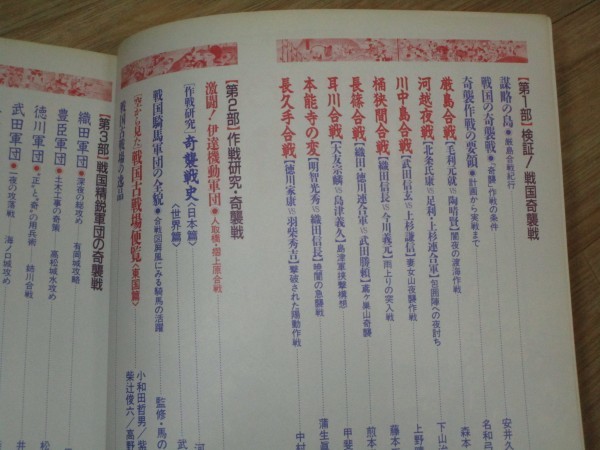 【第1部】検証!戦国奇襲戦
謀略の島●厳島合戦紀行
安井久
戦国の奇襲戦●「奇襲」作戦の条件
名和弓
奇襲作戦の要領●計画から実戦まで
森本
厳島合戦【毛利元就VS陶晴賢】闇夜の渡海作戦
下山治
河越夜戦【北条氏康VS足利・上杉連合軍】包囲陣への夜討ち
上野晴
川中島合戦【武田信玄VS上杉謙信】妻女山夜襲作戦
藤本
桶狭間合戦【織田信長VS今川義元】雨上りの突入戦
煎本
長篠合戦【織田・徳川連合軍VS武田勝頼】鳶ヶ巣山奇襲
甲斐
耳川合戦【大友宗麟VS島津義久】島津軍挟撃構想
本能寺の変【明智光秀VS織田信長】暁闇の急襲戦
蒲生眞
長久手合戦【徳川家康VS羽柴秀吉】撃破された陽動作戦
中村
【第2部】作戦研究・奇襲戦
激闘!伊達機動軍団●人取橋・摺上原合戦
河
[作戦研究]奇襲戦史〈日本篇〉〈世界篇〉
武
戦国騎馬軍団の全貌●合戦図屏風にみる騎馬の活躍
監修・馬の
[空から見た]戦国古戦場便覧〈東国篇〉
小和田哲男/柴
戦国合戦場の逸品
柴辻俊六/高野
【第3部】戦国精鋭軍団の奇襲戦
織田軍団●深夜の総攻め
有岡城攻略
豊臣軍団●土木工事の奇策
高松城水攻め
徳川軍団●“正”と“奇”の用兵術
姉川合戦
武田軍団●一夜の攻落戦
海ノ口城攻め